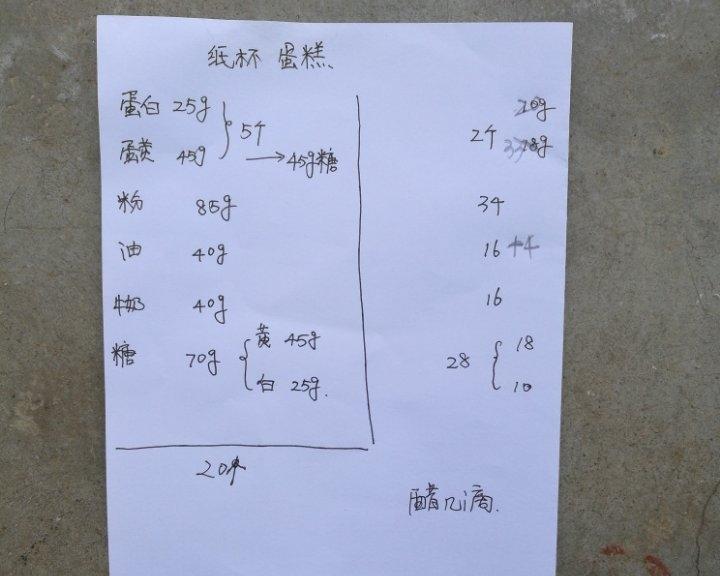 纸杯 蛋糕
蛋白 25g 5个 20g
蛋黄 45g →45g糖 2个 18g
粉 85g 34
油 40g 16 44
牛奶 40g 16
糖 70g 黄 45g 28 18
白 25g. 10
20个
醋几滴.